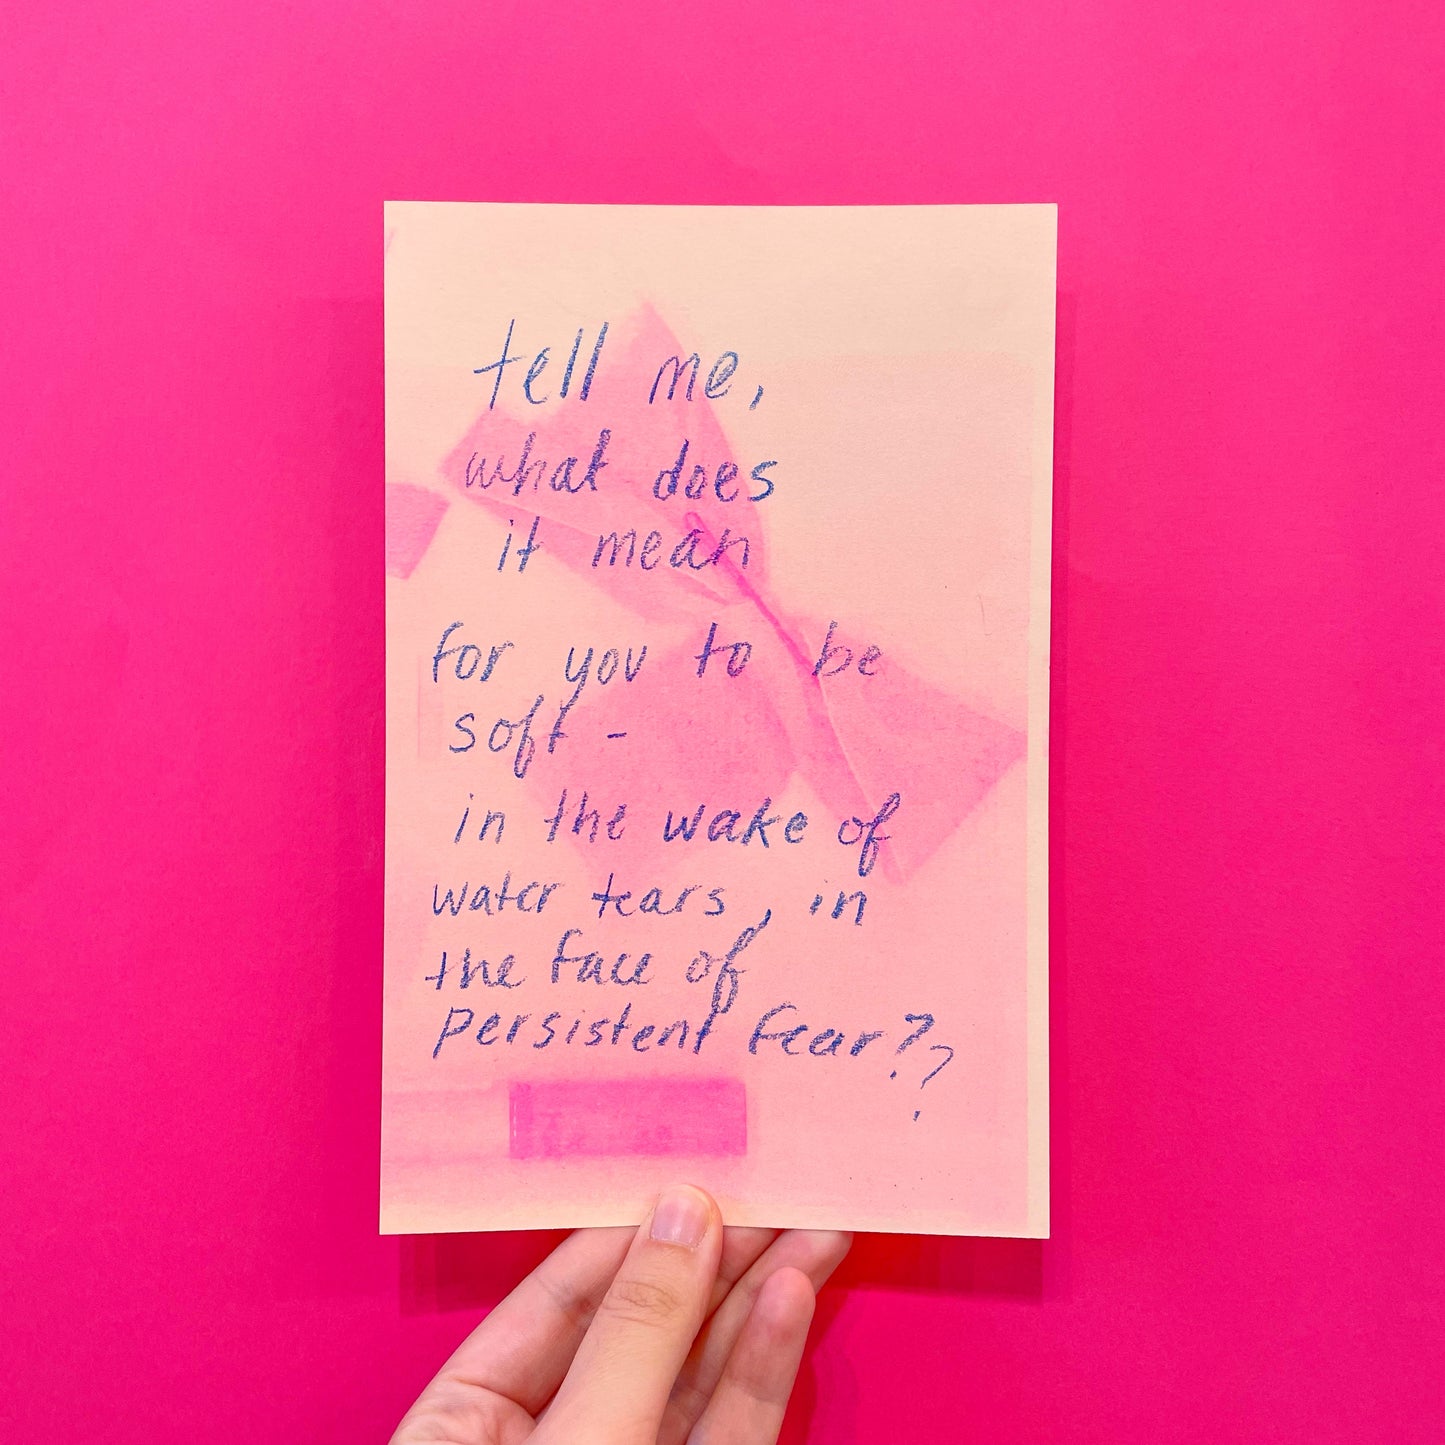 tell me,
what does
it mean
for you to be
soft -
in the wake of
water tears, in
the face of
persistent fear??